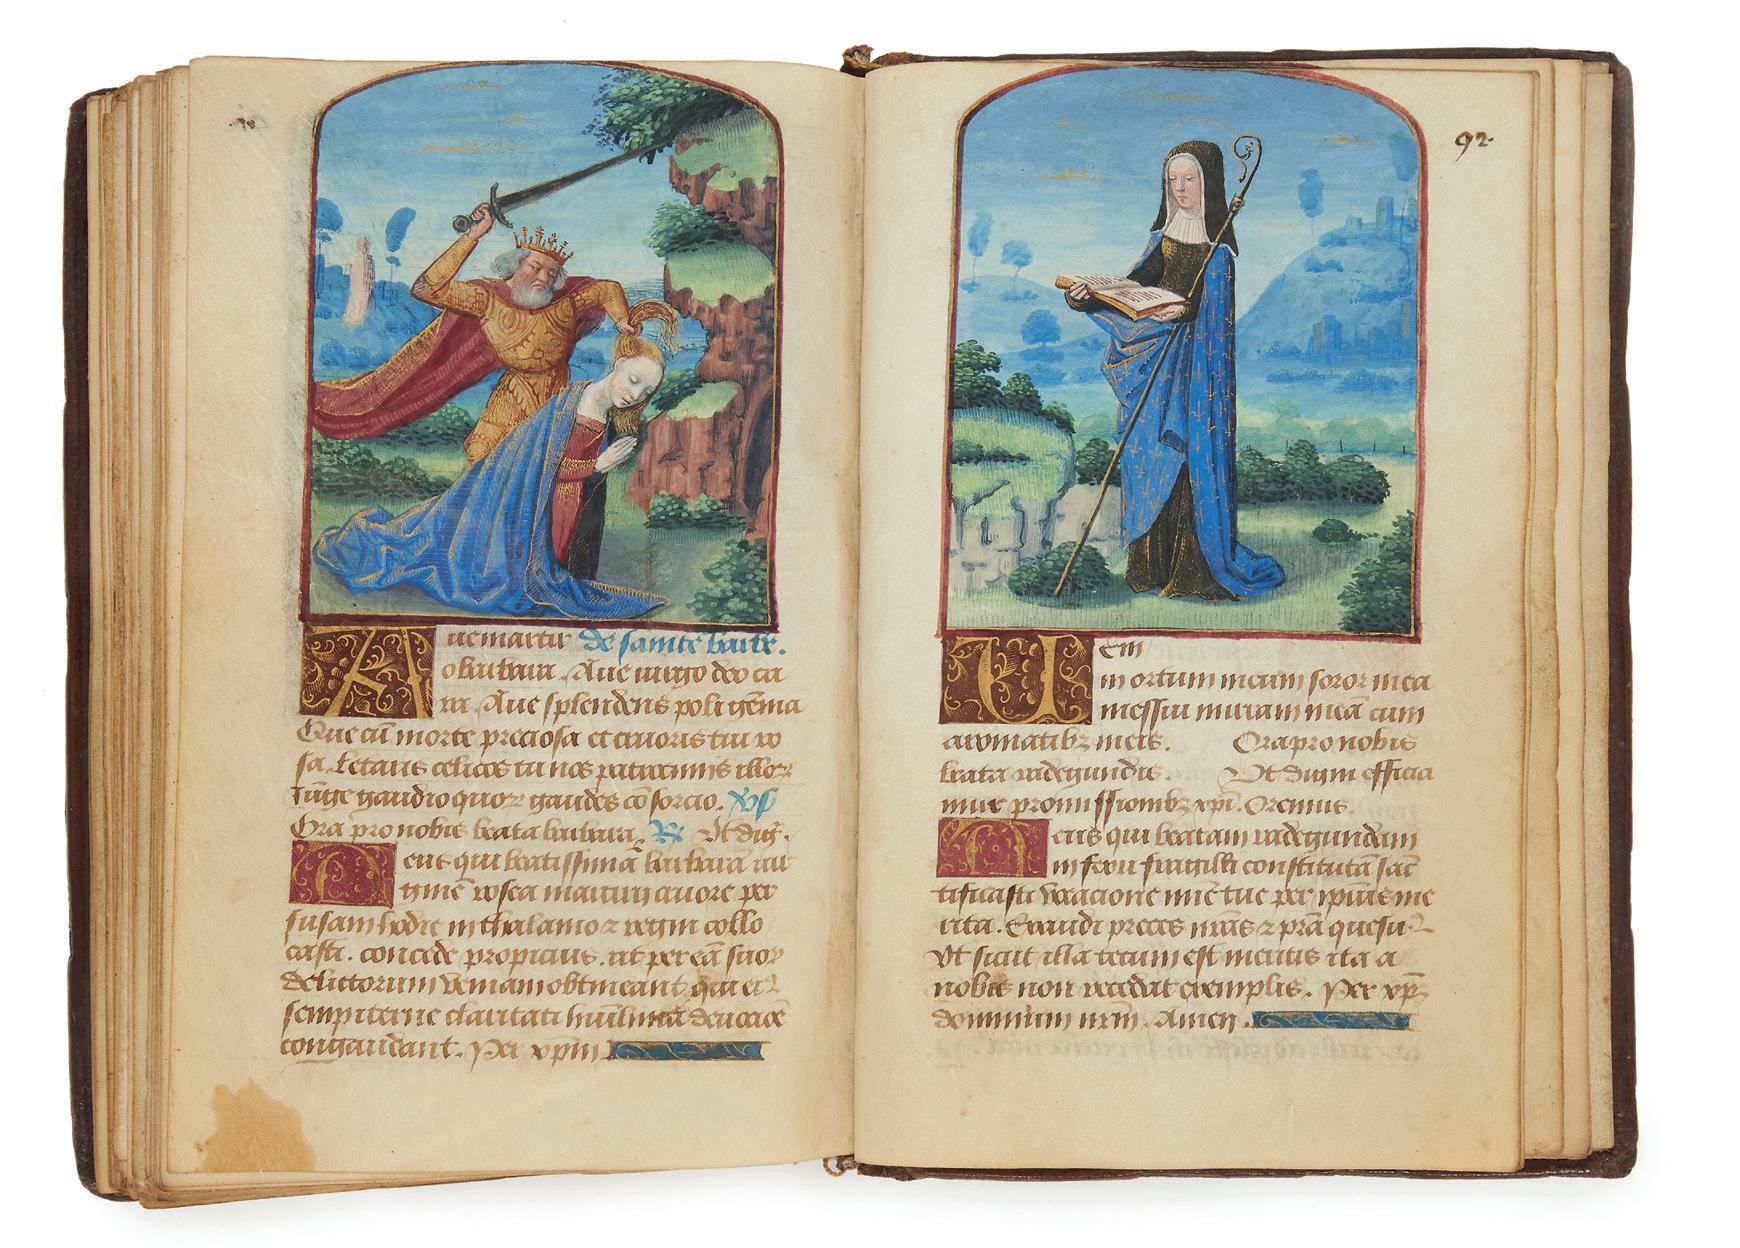 ue martir de sainte barbe.
o barbara. Aue uirgo deo ca
ra. Aue splendens poli gēma
Que cū morte preciosa et cruoris tui ro
sa. Letaris celicos tu nos patrociniis illoꝝ
iūge gaudio quoꝝ gaudes cōsorcio.
Ora pro nobis beata barbara. Vt dig.
eus qui beatissimā barbaram uir
ginē rosea martirij cruore per
fusam hodie in thalamo regni collo
casti. concede propicius. ut per eā suoꝝ
delictorum veniam obtineant qui ei
sempiterne claritati deuocōe
congaudant. Per xpm
92
Eni
in ortum meum soror mea
messui mirram meā cum
aromatibꝫ meis. Ora pro nobis
beata radegundis. Vt digni efficia
mur promissionibꝫ xpi. Oremus.
eus qui beatam radegundam
in sexu fragili constitutā sāc
tificasti vocacione tue per ipsius me
rita. Exaudi preces nr̄as quesum9
Vt sicut illa tecum est meritis ita a
nobis non recedat exemplis. Per xpm
dominum nrm. Amen.